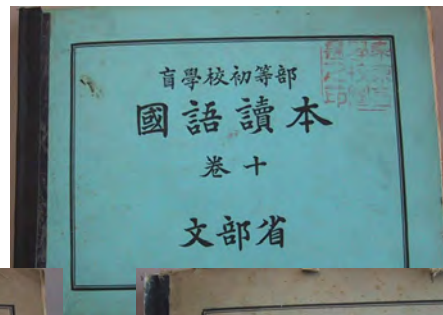 盲學校初等部
國語讀本
卷十
文部省